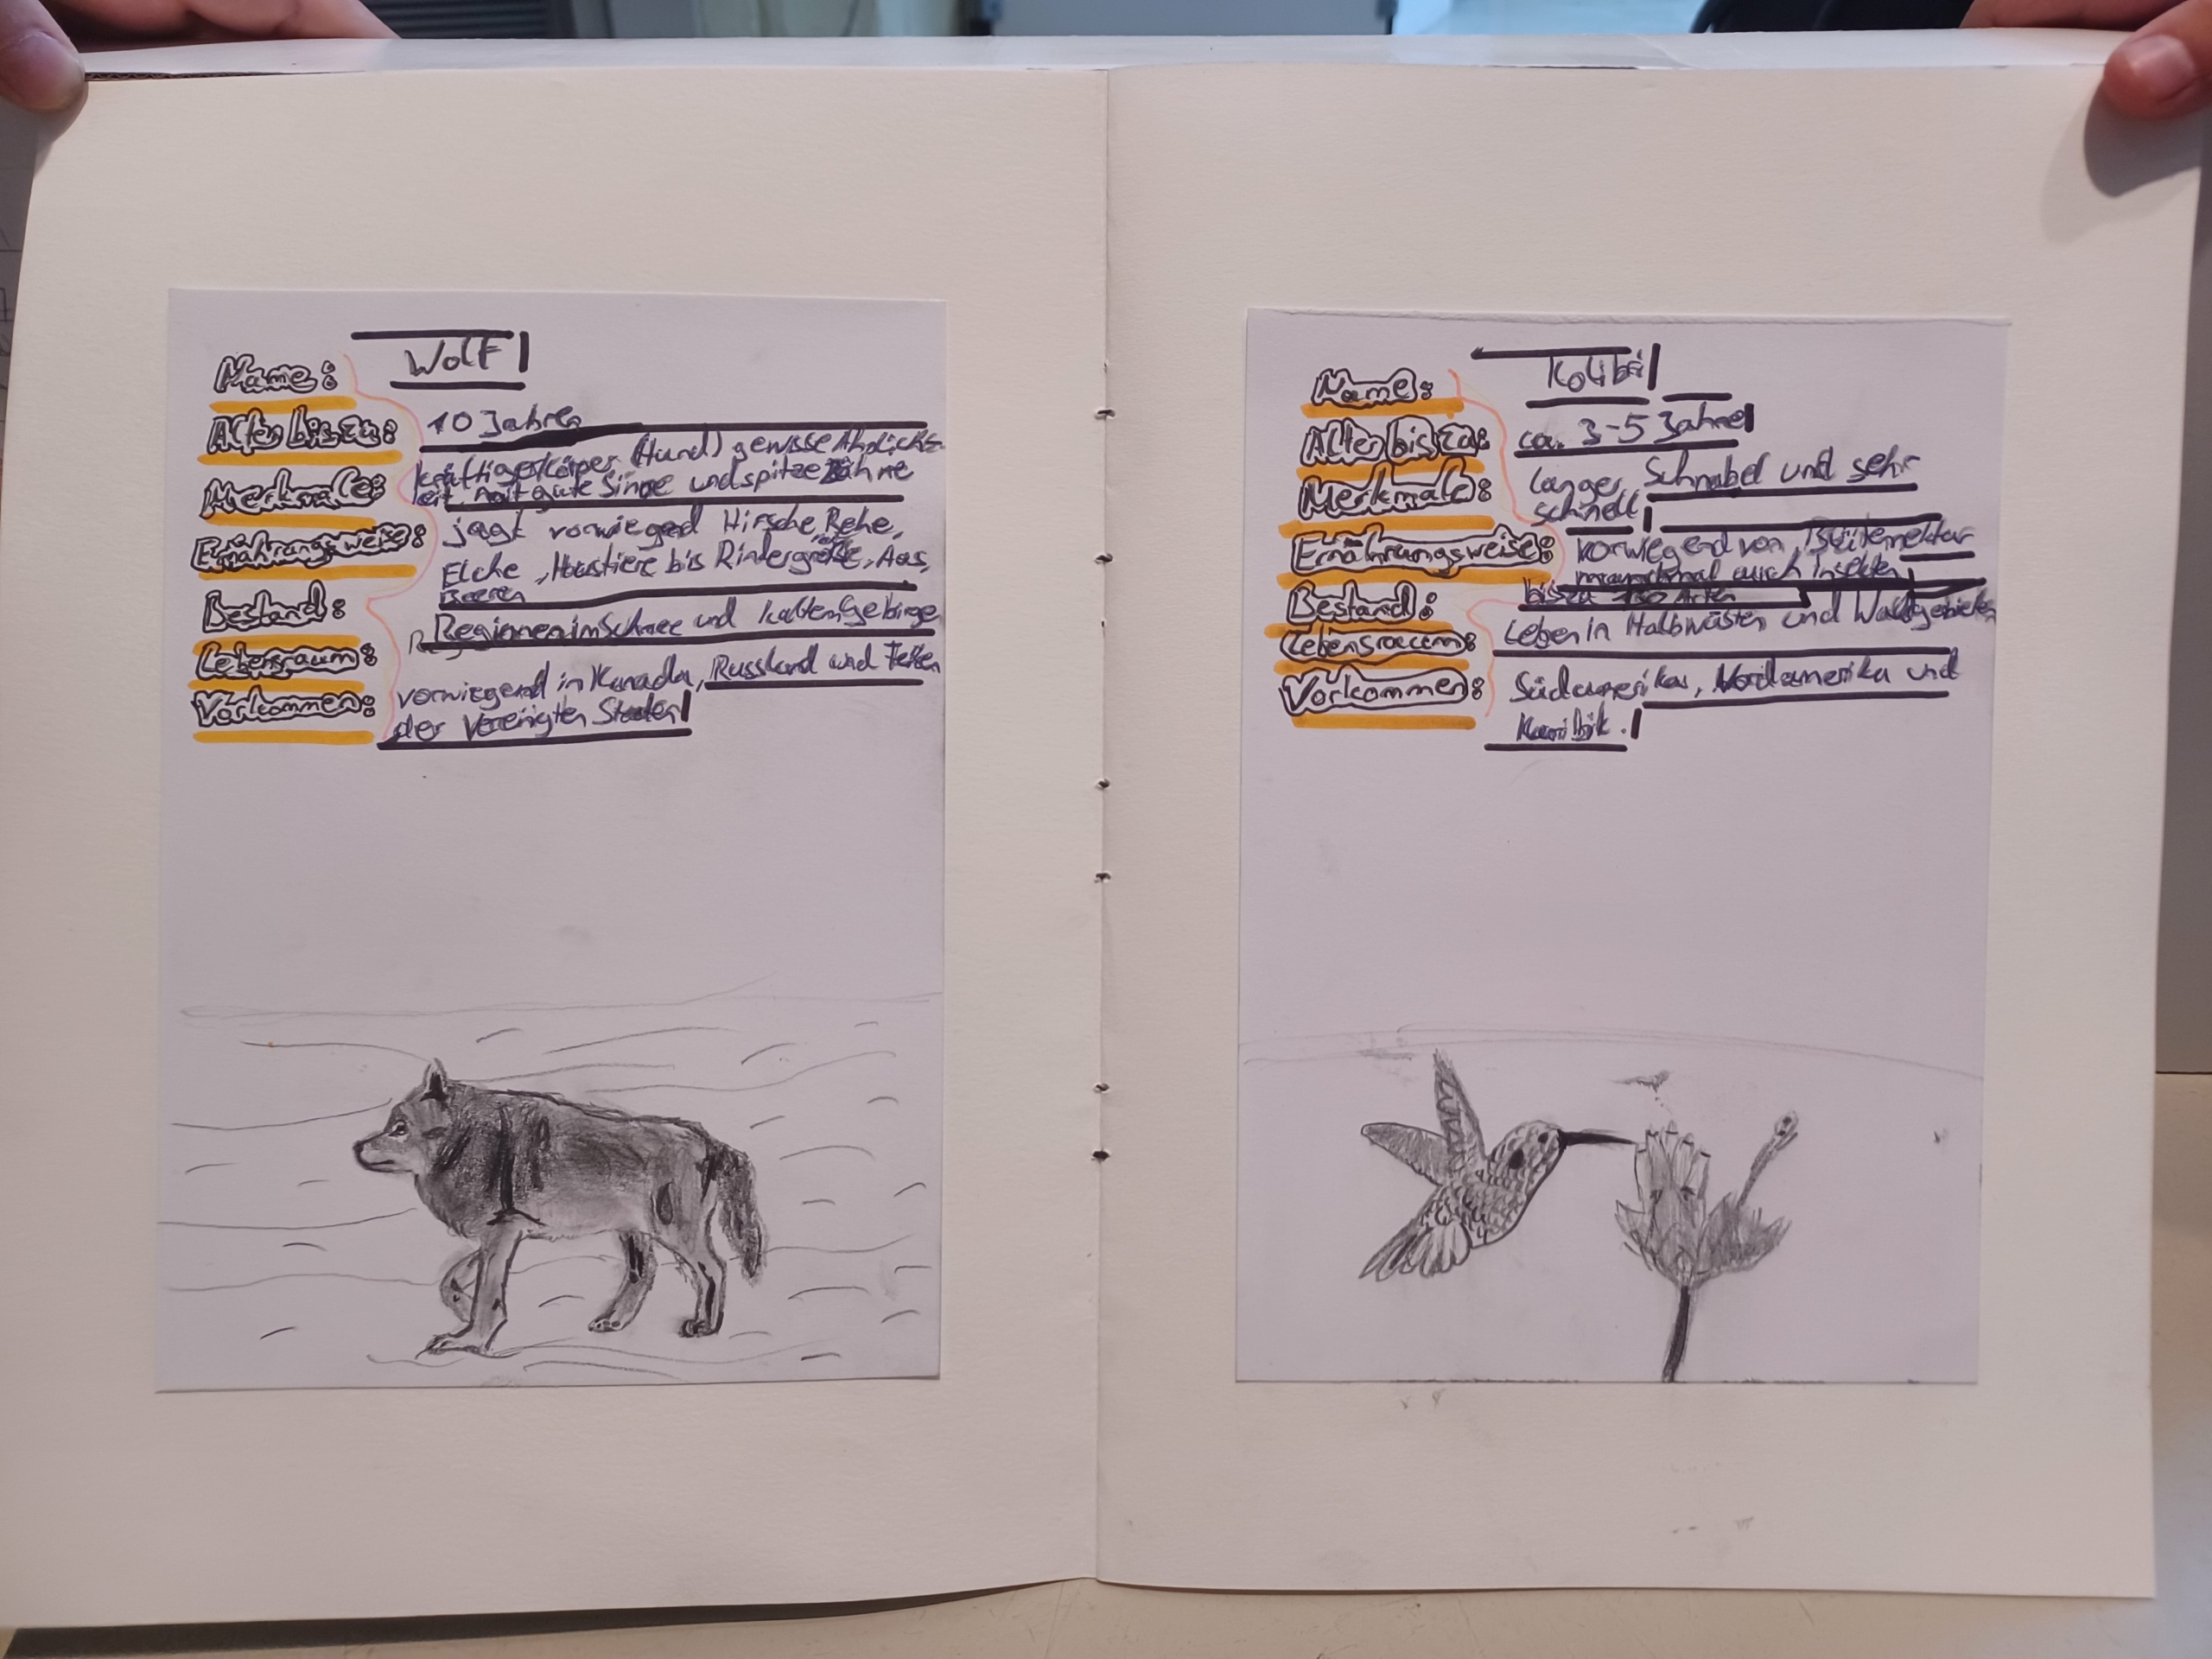 Name: Wolf
Alter bis zu: 10 Jahren
Merkmale: kräftiger Körper (Hund) gewisse Ähnlichk-
eit, mit gute Sinne und spitze Zähne
Ernährungsweise: jagt vorwiegend Hirsche, Rehe,
Elche, Haustiere bis Rindergröße, Aas,
Beeren
Bestand:
Lebensraum: Regionen im Schnee und kalten Gebirge
Vorkommen: vorwiegend in Kanada, Russland und Teilen
der Vereinigten Staaten
Name: Kolibri
Alter bis zu: ca. 3-5 Jahre
Merkmale: langer Schnabel und sehr
schnell
Ernährungsweise: vorwiegend von Blütennektar
manchmal auch insekten
Bestand: bis zu Arten
Lebensraum: Leben in Halbwüsten und Waldgebieten
Vorkommen: Südamerika, Nordamerika und
Karibik.